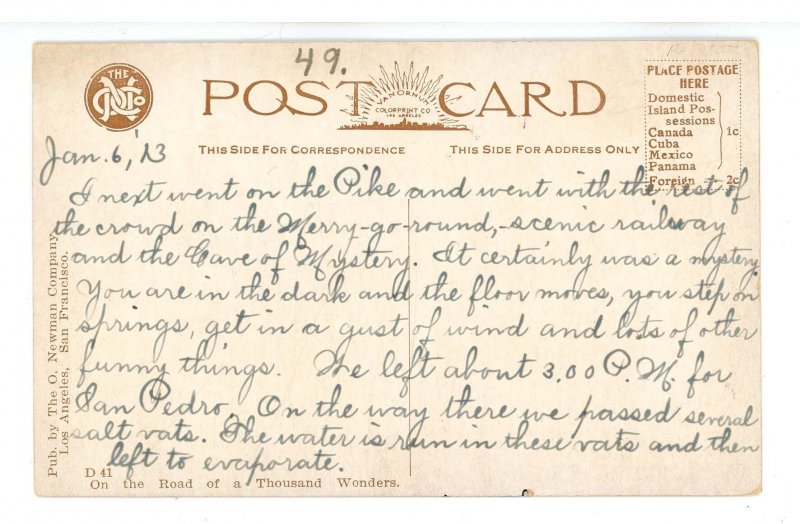 49.
THE
POST CARD
VAN ORNUM
COLORPRINT CO
LOS ANGELES
THIS SIDE FOR CORRESPONDENCE
THIS SIDE FOR ADDRESS ONLY
PLACE POSTAGE
HERE
Domestic
Island Pos-
sessions
Canada
Cuba
Mexico
Panama
1c
Foreign 2c
Jan. 6, '13
I next went on the Pike and went with the rest of
the crowd on the Merry-go-round,-scenic railway
and the Cave of Mystery. It certainly was a mystery.
You are in the dark and the floor moves, you step on
springs, get in a gust of wind and lots of other
funny things. We left about 3.00 P.M. for
San Pedro. On the way there we passed several
salt vats. The water is run in these vats and then
left to evaporate.
Pub. by The O. Newman Company,
Los Angeles, San Francisco.
D 41
On the Road of a Thousand Wonders.